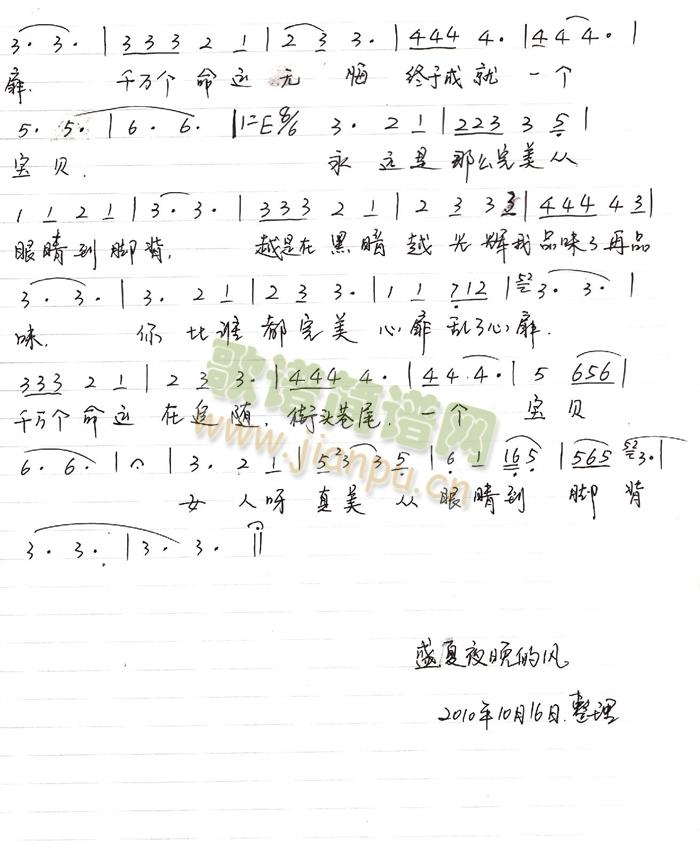 3· 3· | 333 2 1 | 2 3 3· | 444 4· | 44 4· |
扉. 千万个 命运 无 悔 终于成就 一个
5· 5· | 6· 6· | 1=E 6/8 3· 2 1 | 223 3 5 |
宝 贝. 永 远是 那么完美从
1 1 2 1 | 3· 3· | 333 2 1 | 2 3 3 3 | 444 4 3 |
眼睛到 脚背, 越是在 黑暗 越 光 辉我 品味了再品
3· 3· | 3· 2 1 | 2 3 3· | 1 1 712 | 52 3· 3· |
味. 你 比谁 都完美 心扉 乱了心扉.
333 2 1 | 2 3 3· | 444 4· | 44 4· | 5 656 |
千万个 命运 在 追 随, 街头巷尾. 一个 宝 贝
6· 6· | · | 3· 2 1 | 5 2 3 3 5 | 6 1 165 | 565 52 3· |
女 人呀 真美 从 眼睛到 脚 背
3· 3· | 3· 3· ||
歌谱简谱网
www.jianpu.cn
盛夏夜晚的风
2010年10月16日.整理